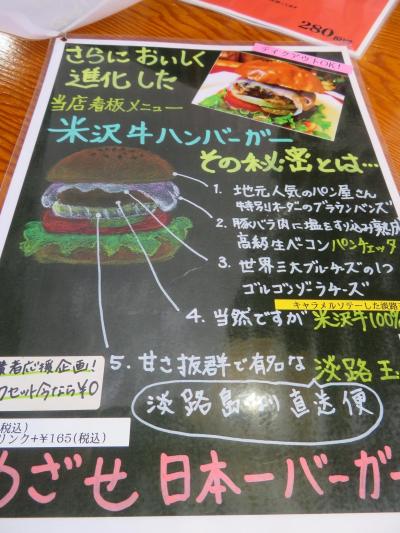 280
テイクアウトOK!
さらにおいしく
進化した
当店看板メニュー
米沢牛ハンバーガー
その秘密とは…
1. 地元人気のパン屋さん
特別オーダーのブラウンバンズ
2. 豚バラ肉に塩をすり込み熟成
高級生ベーコン パンチェッタ
3. 世界三大ブルーチーズの1つ
ゴルゴンゾーラチーズ
キャラメルソテーした淡路
4. 当然ですが 米沢牛100%
5. 甘さ抜群で有名な 淡路玉
淡路島より直送便
業者応援企画!
クセット今なら¥0
税込)
リンク+¥165(税込)
めざせ 日本一バーガー